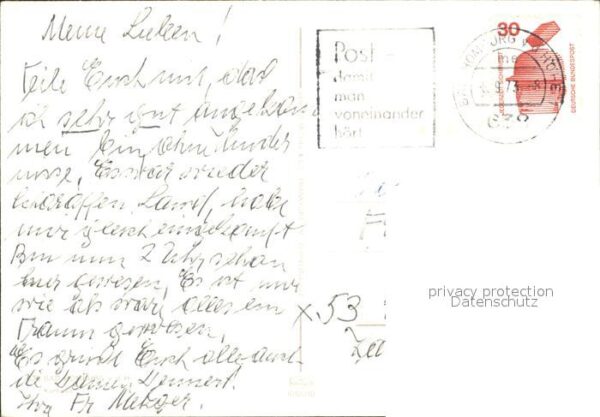 Meine Lieben!
Teile Euch mit, daß
ich sehr gut angekom
men bin, ohne Hinder
nisse, Es war wieder
Land, habe
mir gleich eingekauft
Bin um 2 Uhr schon
hier gewesen, Es ist mir
wie als wär alles ein
Traum gewesen,
Es grüßt Euch alle auch
die Damen
Ihre Fr Metzger.
Post -
damit
man
voneinander
hört
30
DEUTSCHE BUNDESPOST
638
x.53
privacy protection
Datenschutz